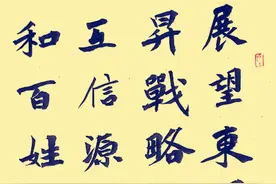 展望東
昇戰略
互信源
和百姓